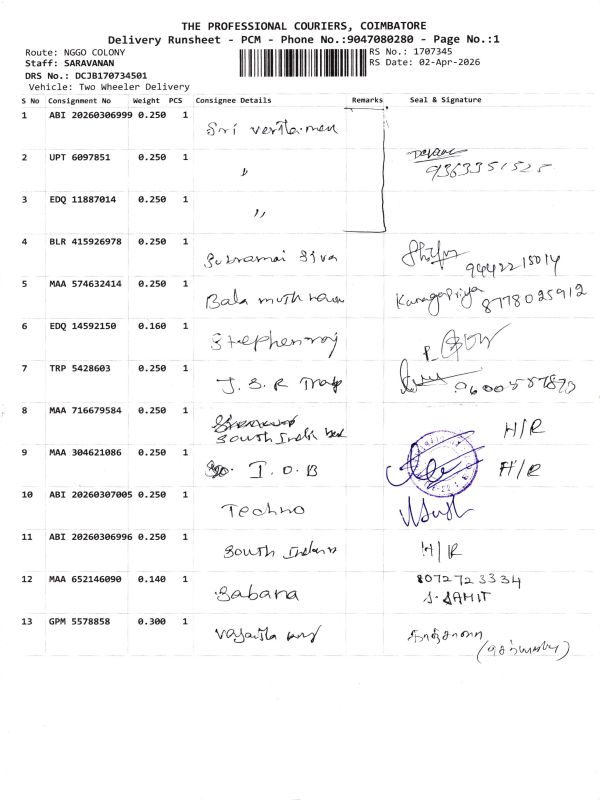 THE PROFESSIONAL COURIERS, COIMBATORE
Delivery Runsheet - PCM - Phone No.:9047080280 - Page No.:1
Route: NGGO COLONY
RS No.: 1707345
Staff: SARAVANAN
RS Date: 02-Apr-2026
DRS No.: DCJB170734501
Vehicle: Two Wheeler Delivery
S No Consignment No Weight PCS Consignee Details Remarks Seal & Signature
1 ABI 20260306999 0.250 1 Sri
2 UPT 6097851 0.250 1 "
3 EDQ 11887014 0.250 1 "
4 BLR 415926978 0.250 1 Siva 9442215014
5 MAA 574632414 0.250 1 Bala Kanagapriya 8778025912
6 EDQ 14592150 0.160 1 Stephenraj
7 TRP 5428603 0.250 1 J.S.R
8 MAA 716679584 0.250 1 South H/R
9 MAA 304621086 0.250 1 I.O.B H/R
10 ABI 20260307005 0.250 1 Techno
11 ABI 20260306996 0.250 1 South H/R
12 MAA 652146090 0.140 1 Sabana 8072723334
S. SAMIT
13 GPM 5578858 0.300 1